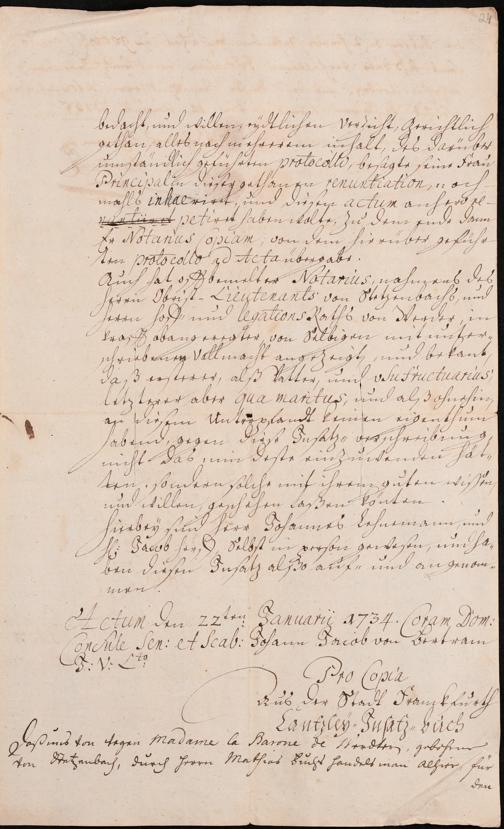 24
bedacht, und willen, eydtlichen Verzicht, Gerichtlich
gethan, alles nach mehrerem inhalt, des darüber
umständlich geführten protocolls, besagte seine Frau
Principalin dieser gethanen renuntiation, noch-
mahls inhaeriret, und diesen actum anhero re-
petiret haben wolte, zu dem ende dann
Er Notarius Copiam, von dem hierüber geführ-
ten protocollo ad Acta übergabe.
Auch hat offtbemelter Notarius, nahmens des
Herrn Obrist-Lieutenants von Stetzenbachs, und
Herrn Hoff- und legations Raths von Werder, in
krafft obangeregter, von Selbigen mit unter-
schriebener Vollmacht angezeigt, und bekant,
daß ersterer, alß Vatter, und Usufructuarius
letzterer aber qua maritus, und alß ohnehin
an diesem Unterpfandt keinen eigenthum
habend, gegen diese Insatz verschreibung
nicht das mindeste einzuwenden hät-
ten, sondern solche mit ihrem guten wissen,
und willen, geschehen laßen könten.
Hierbey sind Herr Johannes Lehnemann, und
H. Jacob Selbst in person gewesen, und ha-
ben diesen Insatz also auf- und angenom-
men.
Actum den 22ten Januarii 1734. Coram Dom:
Consule Sen: et Scab: Johann Jacob von Bertram
J: V: Lto
Pro Copia
Aus der Stadt Franckfurth
Cantzley-Insatz-buch
Daß uns von wegen Madame la Barone de gebohrne
von Stetzenbach, durch Herrn Mathias handelsman alhier, für
den